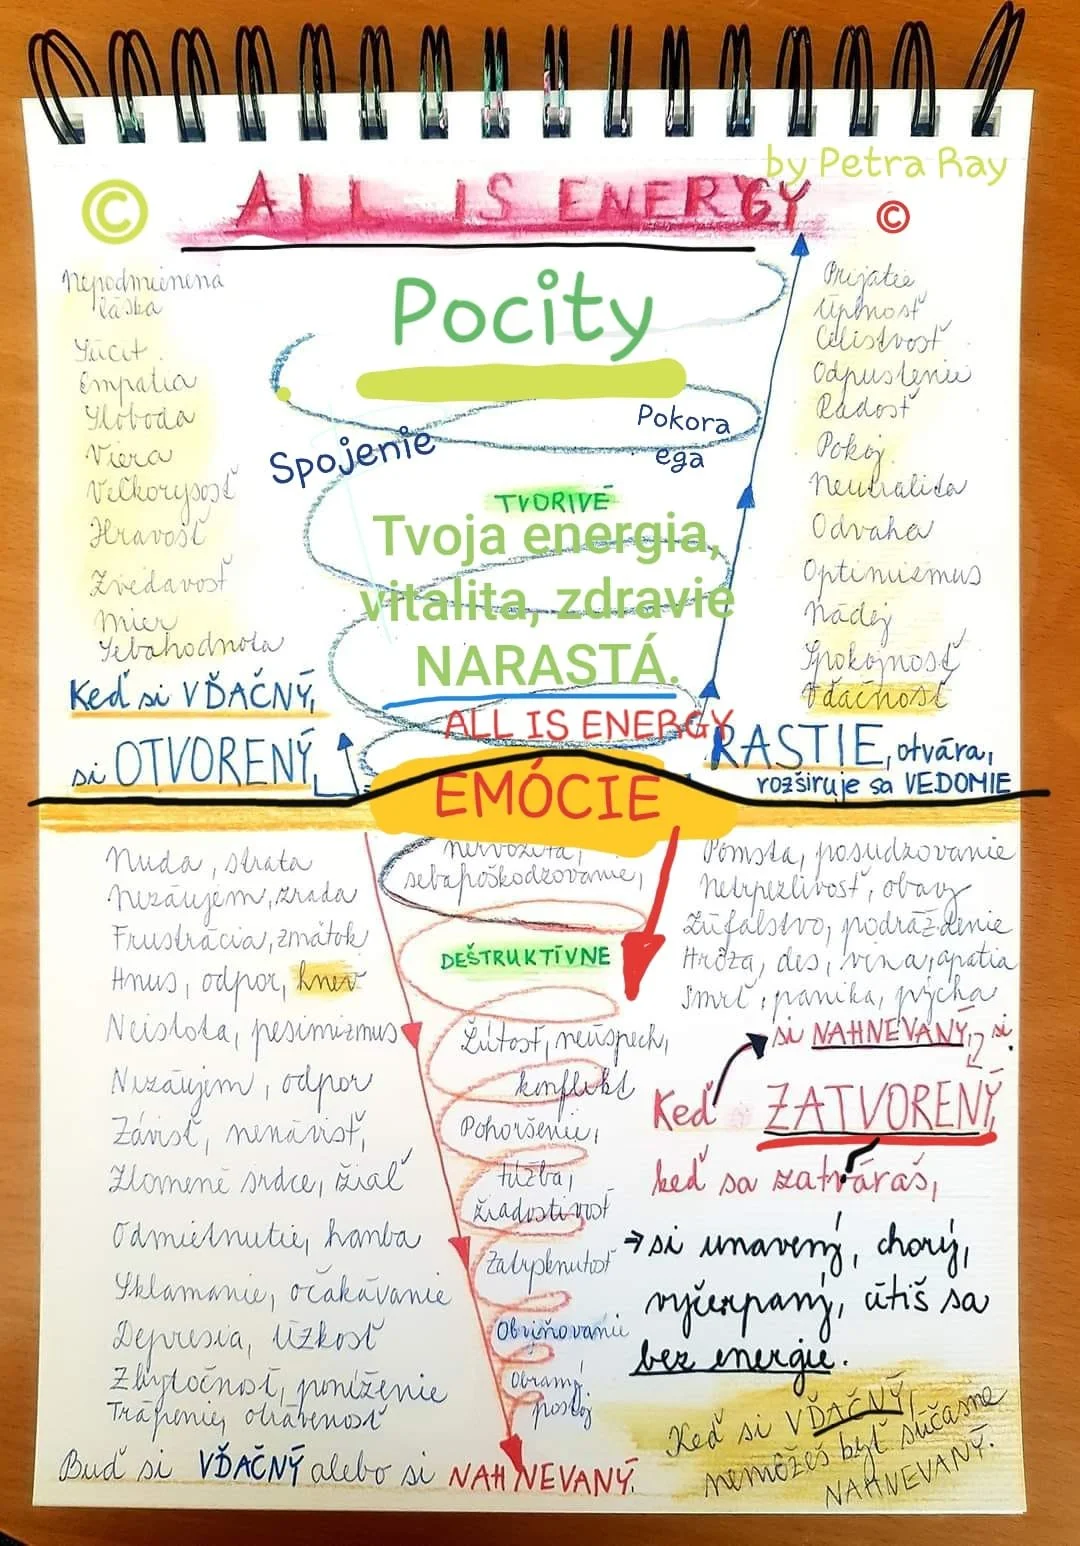 by Petra Ray
©
ALL IS ENERGY
©
Pocity
Nepodmienená
láska
Súcit
Empatia
Sloboda
Viera
Veľkorysosť
Hravosť
Zvedavosť
Mier
Sebahodnota
Keď si VĎAČNÝ,
si OTVORENÝ,
Spojenie
Pokora
ega
TVORIVÉ
Tvoja energia,
vitalita, zdravie
NARASTÁ.
ALL IS ENERGY
Prijatie
Úplnosť
Celistvosť
Odpustenie
Radosť
Pokoj
Neutralita
Odvaha
Optimizmus
Nádej
Spokojnosť
Vďačnosť
RASTIE, otvára,
rozširuje sa VEDOMIE
EMÓCIE
Nuda, strata
Nezáujem, zrada
Frustrácia, zmätok
Hnus, odpor, hnev
Neistota, pesimizmus
Nezáujem, odpor
Závisť, nenávisť,
Zlomené srdce, žiaľ
Odmietnutie, hanba
Sklamanie, očakávanie
Depresia, úzkosť
Zbytočnosť, poníženie
Trápenie, otrávenosť
nervozita,
sebapoškodzovanie,
DEŠTRUKTÍVNE
Ľútosť, neúspech,
konflikt
Pohoršenie,
túžba,
žiadostivosť
Zatrpknutosť
Obviňovanie
Obranný
postoj
Pomsta, posudzovanie
Netrpezlivosť, obavy
Zúfalstvo, podráždenie
Hrôza, des, vina, apatia
Smrť, panika, pýcha
si NAHNEVANÝ, si
Keď ZATVORENÝ,
keď sa zatváraš,
→ si unavený, chorý,
vyčerpaný, cítiš sa
bez energie.
Keď si VĎAČNÝ,
nemôžeš byť súčasne
NAHNEVANÝ.
Buď si VĎAČNÝ alebo si NAHNEVANÝ.